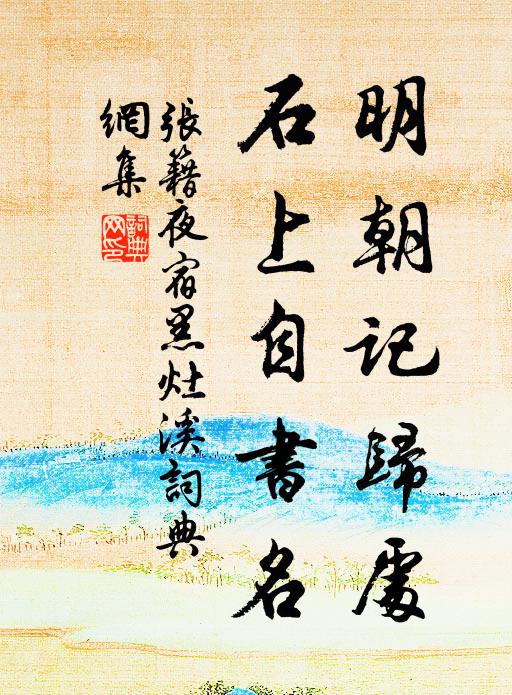 明朝記歸處
石上自書名
張籍夜宿黑灶溪詞典
網集
詞典
网印